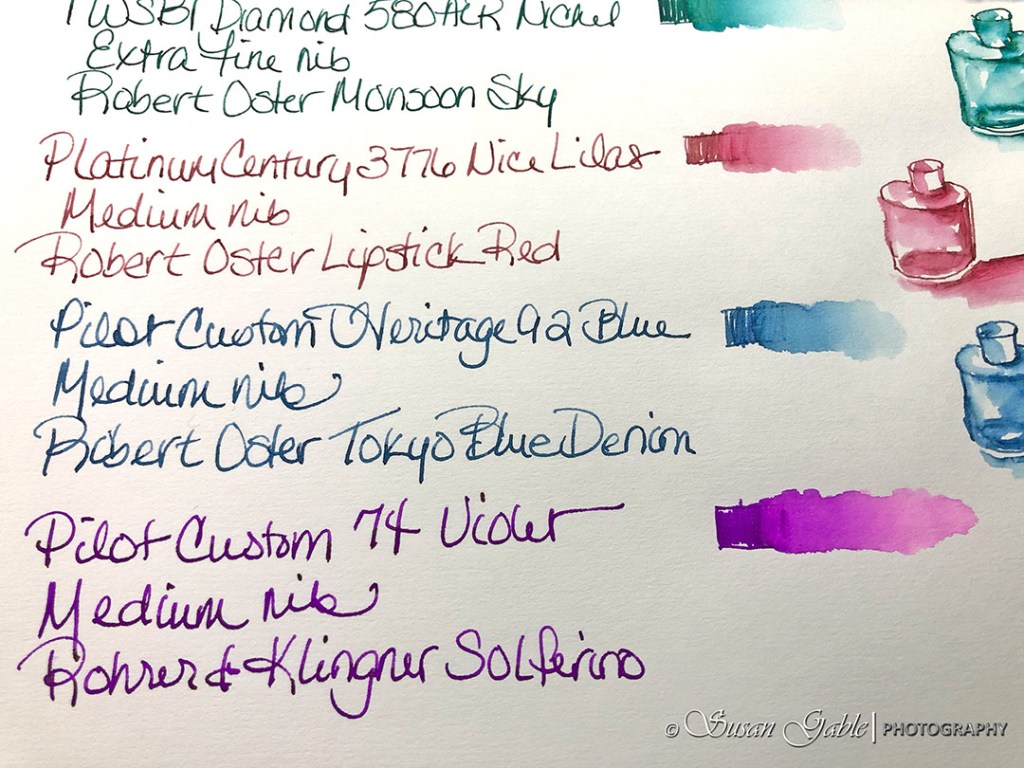 TWSBI Diamond 580ALR Nickel
Extra Fine nib
Robert Oster Monsoon Sky
Platinum Century 3776 Nice Lilas
Medium nib
Robert Oster Lipstick Red
Pilot Custom Heritage 92 Blue
Medium nib
Robert Oster Tokyo Blue Denim
Pilot Custom 74 Violet
Medium nib
Rohrer & Klingner Solferino
© Susan Gable | PHOTOGRAPHY